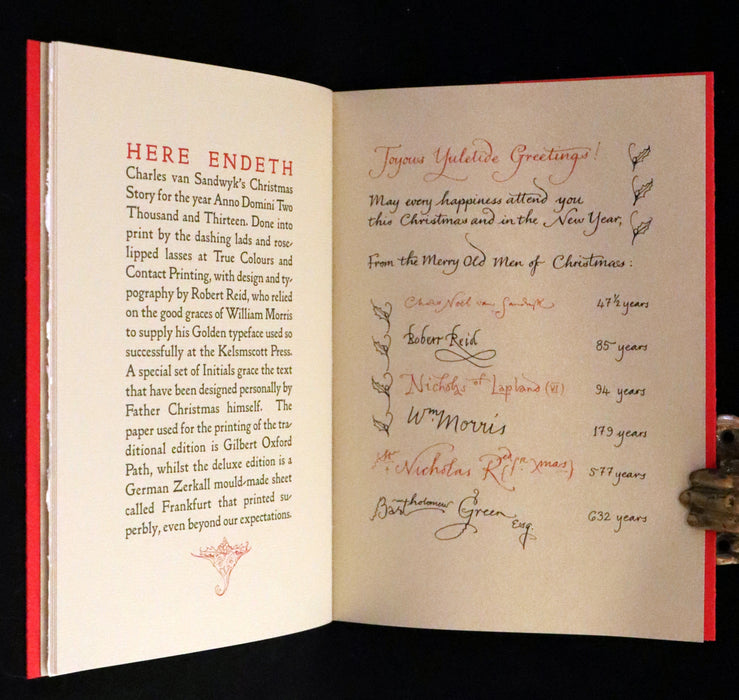 HERE ENDETH
Charles van Sandwyk's Christmas
Story for the year Anno Domini Two
Thousand and Thirteen. Done into
print by the dashing lads and rose-
lipped lasses at True Colours and
Contact Printing, with design and ty-
pography by Robert Reid, who relied
on the good graces of William Morris
to supply his Golden typeface used so
successfully at the Kelsmscott Press.
A special set of Initials grace the text
that have been designed personally by
Father Christmas himself. The
paper used for the printing of the tra-
ditional edition is Gilbert Oxford
Path, whilst the deluxe edition is a
German Zerkall mould-made sheet
called Frankfurt that printed su-
perbly, even beyond our expectations.
Joyous Yuletide Greetings!
May every happiness attend you
this Christmas and in the New Year,
From the Merry Old Men of Christmas:
Noël van Sandwyk 47½ years
Robert Reid 85 years
Nicholas of Lapland (VI) 94 years
Wm. Morris 179 years
St. Nicholas 577 years
Bartholomew Green Esq. 632 years